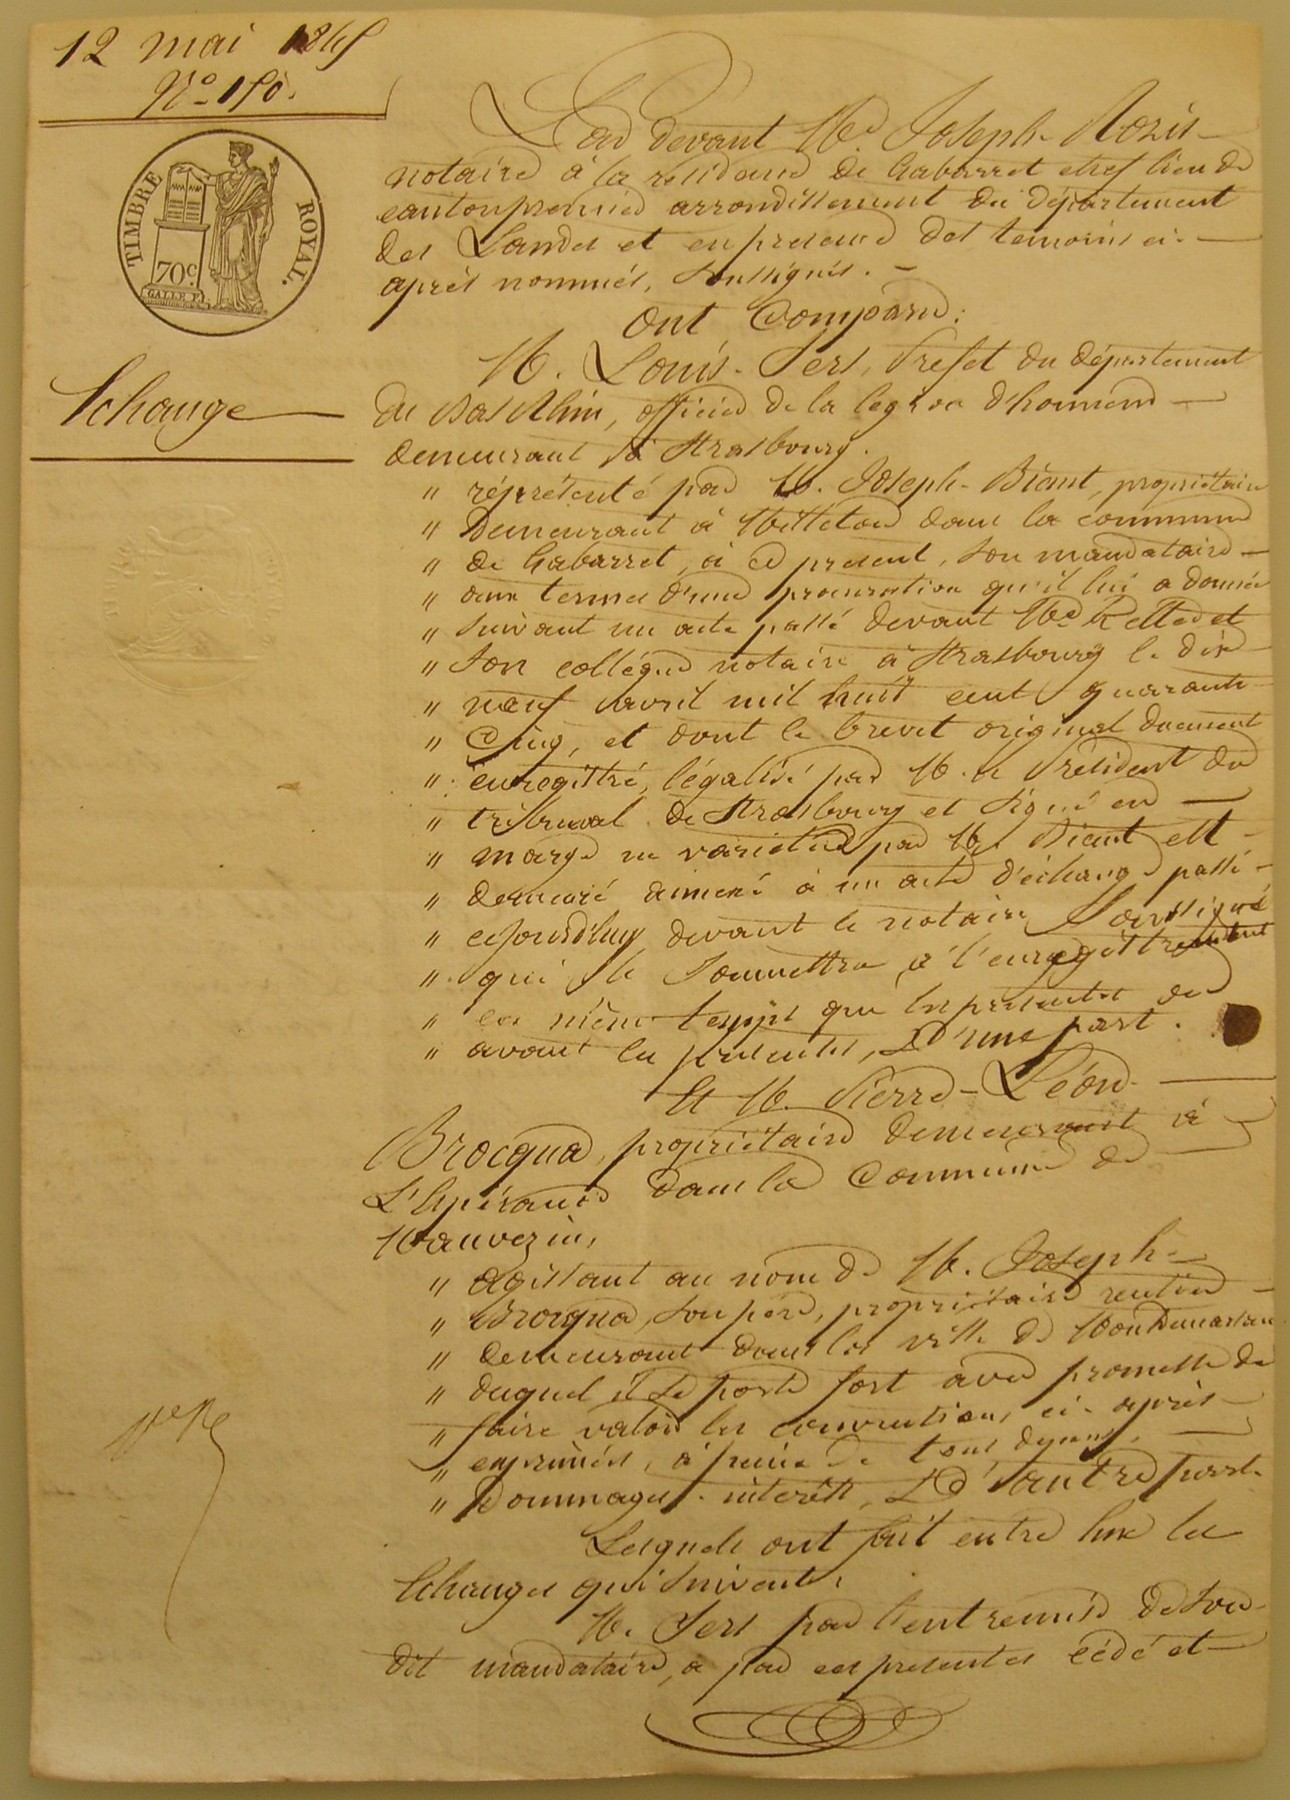 12 mai 1845
N.o 150.
TIMBRE ROYAL.
70c.
GALLE F.
Echange
Par devant Me. Joseph Rozis
notaire à la residance de Gabarret chef lieu de
canton premier arrondissement du département
des Landes et en presence des temoins ci-
après nommés, soussignés.
Ont Comparu:
M. Louis Sers, Prefet du département
du Bas Rhin, officier de la legion d'honneur
demeurant à Strasbourg.
" réprésenté par M. Joseph Biant, propriétaire
" Demeurant à dans la commune
" de Gabarret, à ce present, son mandataire
" aux termes d'une procuration qu'il lui a donnée
" suivant un acte passé devant Me et
" son collégue notaire à Strasbourg le dix
" neuf avril mil huit cent quarante
" Cinq, et dont le brevet original duement
" enregistré, légalisé par M. le Président du
" tribunal de Strasbourg et signé en
" marge ne varietur par M. Biant est
" demeuré annexé à un acte d'échange passé
" cejourd'huy devant le notaire Soussigné
" qui le soumettra à l'enregistrement
" en même temps que les presentes ou
" avant les presentes, D'une part.
Et M. Pierre-Léon
Brocqua, propriétaire demeurant à
L'Espérance dans la Commune de
Mauvezin,
" agissant au nom de M. Joseph
" Brocqua, son père, propriétaire rentier
" demeurant dans la ville de Montdemarsan
" duquel il se porte fort avec promesse de
" faire valoir les conventions ci-après
" exprimées, à peine de tous depens,
" Dommages-interêts, D'autre part.
Lesquels ont fait entre eux les
Echanges qui suivent.
M. Sers par l'entremise de son
dit mandataire, a par ces presentes cédé et